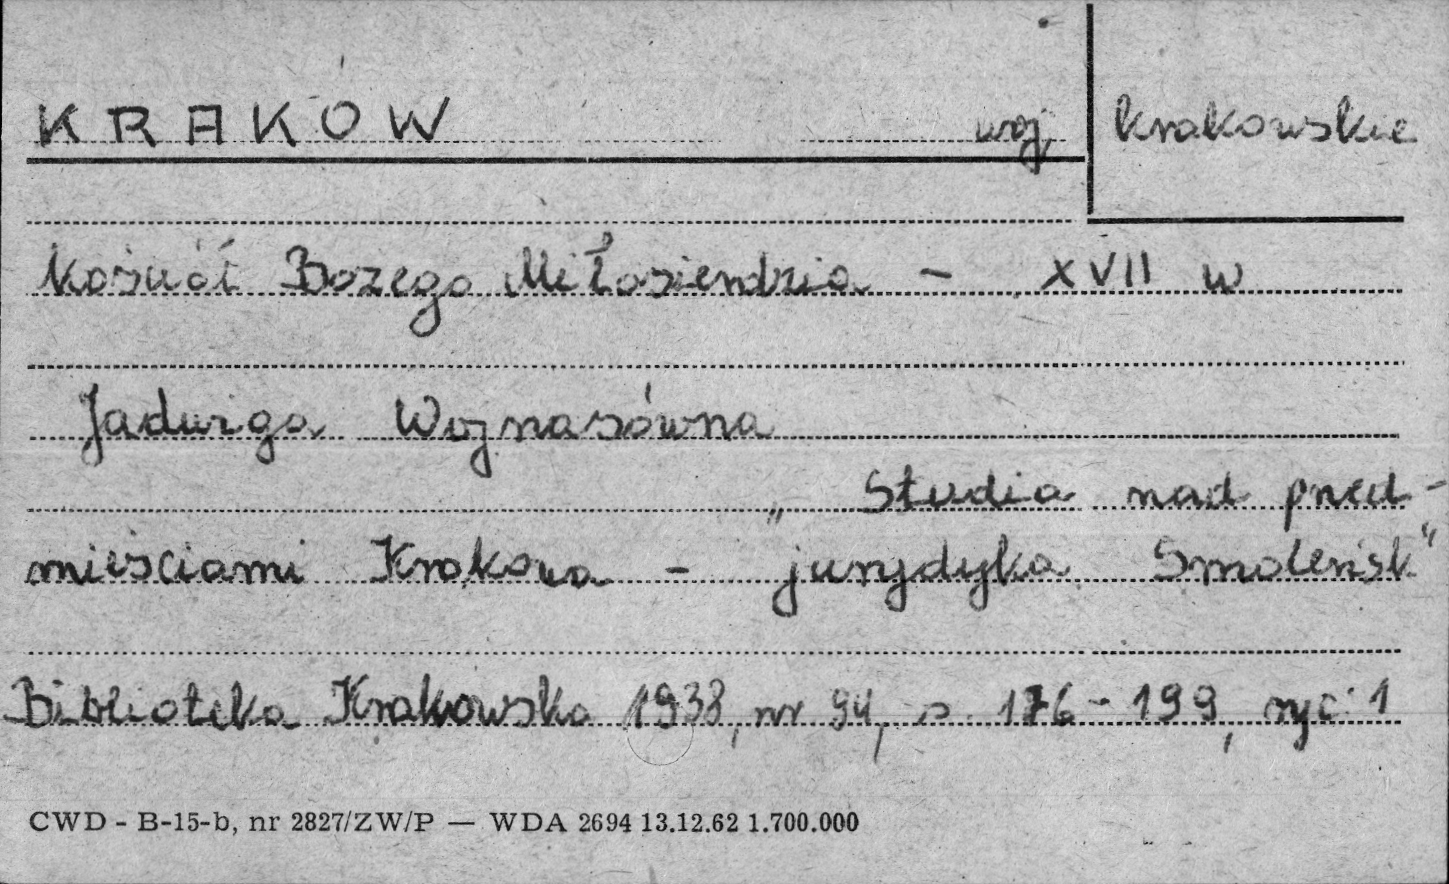 KRAKÓW woj. krakowskie
Kościół Bożego Miłosierdzia - XVII w
Jadwiga Wojnasówna
„Studia nad przed-
mieściami Krakowa - jurydyka Smoleńsk"
Biblioteka Krakowska 1938, nr 94, s. 176-199, ryc. 1
CWD - B-15-b, nr 2827/ZW/P — WDA 2694 13.12.62 1.700.000